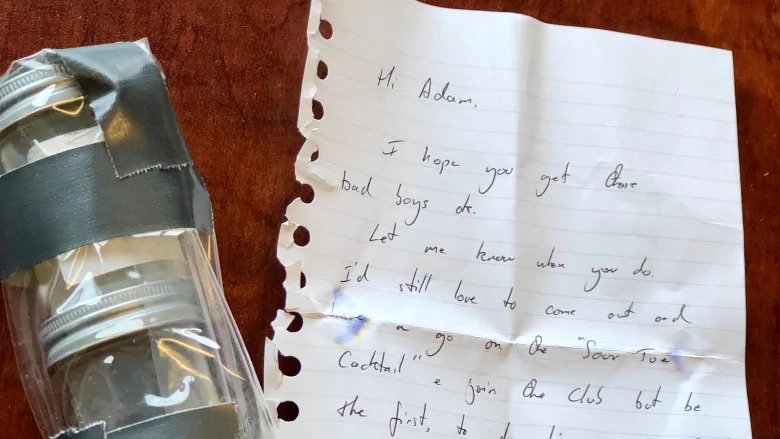 Hi Adam,
I hope you get these
bad boys ok.
Let me know when you do.
I'd still love to come out and
have a go on the "Sour Toe
Cocktail" & join the club but be
the first, to